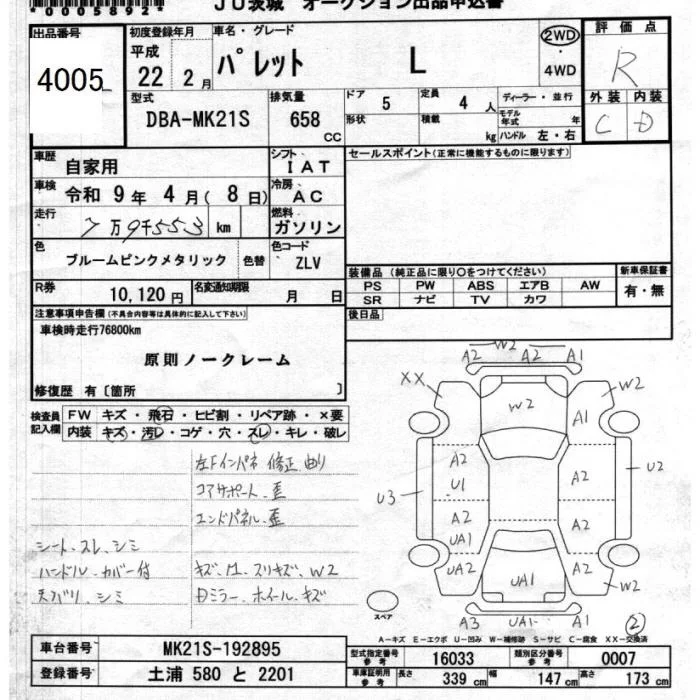 *0005892*
JU茨城 オークション出品申込書
出品番号
4005
初度登録年月
平成
22 2月
車名・グレード
パレット L
2WD
・
4WD
評価点
R
型式
DBA-MK21S
排気量
658
CC
ドア
5
形状
定員
4 人
積載
kg
ディーラー・並行
モデル年式 年
ハンドル 左・右
外装 内装
C D
車歴
自家用
シフト
IAT
セールスポイント(正常に機能するものに限ります)
車検
令和 9年 4月(8日)
冷房
AC
走行
7万9千553 km
燃料
ガソリン
色
ブルームピンクメタリック
色替
色コード
ZLV
装備品(純正品に限り○をつけてください)
新車保証書
PS PW ABS エアB AW
SR ナビ TV カワ
有・無
R券
10,120円
名変通知期限
月 日
後日品
注意事項申告欄(不具合内容等は具体的に記入して下さい)
車検時走行76800km
原則ノークレーム
修復歴 有〔箇所 〕
検査員記入欄
FW キズ・飛石・ヒビ割・リペア跡・×要
内装 キズ・汚レ・コゲ・穴・スレ・キレ・破レ
左Fインパネ 修正、曲り
コアサポート、歪
エンドパネル、歪
シート、スレ、シミ
ハンドル、カバー付
天バリ、シミ
キズ、凹、スリキズ、W2
Dミラー、ホイール、キズ
W2
A2 A2 A1
XX
W2
W2
A1
A2
U1
A2
U2
U3
A2
UA1
A2
UA2
UA1
A2
W2
A3 UA1 A1
②
スペア
A-キズ E-エクボ U-凹み W-補修跡 S-サビ C-腐食 XX-交換済
車台番号
MK21S-192895
登録番号
土浦 580 と 2201
型式指定番号
参考
16033
類別区分番号
参考
0007
車庫証明用
参考
長さ 339cm
幅 147cm
高さ 173cm